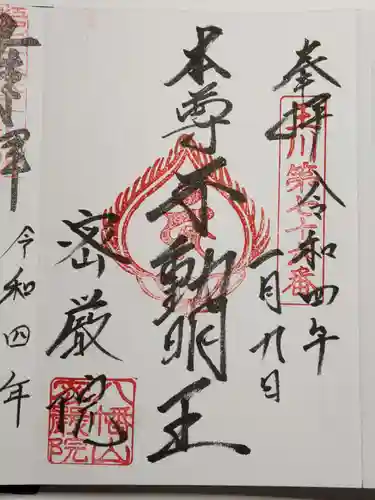 奉拝 令和四年
一月九日
玉川第七十六番
本尊不動明王
密厳院
八幡山
密嚴院
令和四年